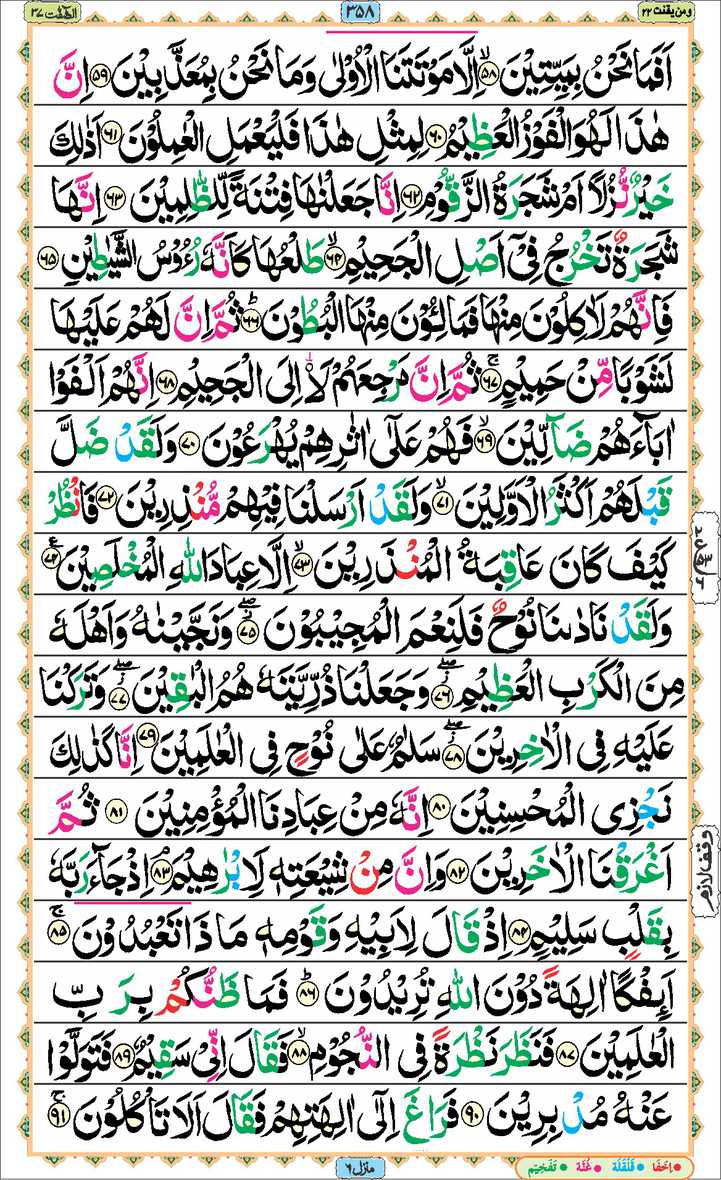 ومن يقنت ٢٣ ٣٥٨ الصّٰٓفّٰت ٣٧
اَفَمَا نَحْنُ بِمَيِّتِيْنَ ۙ﴿۵۸﴾ اِلَّا مَوْتَتَنَا الْاُوْلٰى وَمَا نَحْنُ بِمُعَذَّبِيْنَ ﴿۵۹﴾ اِنَّ
هٰذَا لَهُوَ الْفَوْزُ الْعَظِيْمُ ﴿۶۰﴾ لِمِثْلِ هٰذَا فَلْيَعْمَلِ الْعٰمِلُوْنَ ﴿۶۱﴾ اَذٰلِكَ
خَيْرٌ نُّزُلًا اَمْ شَجَرَةُ الزَّقُّوْمِ ﴿۶۲﴾ اِنَّا جَعَلْنٰهَا فِتْنَةً لِّلظّٰلِمِيْنَ ﴿۶۳﴾ اِنَّهَا
شَجَرَةٌ تَخْرُجُ فِيْۤ اَصْلِ الْجَحِيْمِ ۙ﴿۶۴﴾ طَلْعُهَا كَاَنَّهٗ رُءُوْسُ الشَّيٰطِيْنِ ﴿۶۵﴾
فَاِنَّهُمْ لَاٰكِلُوْنَ مِنْهَا فَمَالِـُٔوْنَ مِنْهَا الْبُطُوْنَ ؕ﴿۶۶﴾ ثُمَّ اِنَّ لَهُمْ عَلَيْهَا
لَشَوْبًا مِّنْ حَمِيْمٍ ۚ﴿۶۷﴾ ثُمَّ اِنَّ مَرْجِعَهُمْ لَا۟اِلَى الْجَحِيْمِ ﴿۶۸﴾ اِنَّهُمْ اَلْفَوْا
اٰبَآءَهُمْ ضَآلِّيْنَ ۙ﴿۶۹﴾ فَهُمْ عَلٰۤى اٰثٰرِهِمْ يُهْرَعُوْنَ ﴿۷۰﴾ وَلَقَدْ ضَلَّ
قَبْلَهُمْ اَكْثَرُ الْاَوَّلِيْنَ ۙ﴿۷۱﴾ وَلَقَدْ اَرْسَلْنَا فِيْهِمْ مُّنْذِرِيْنَ ﴿۷۲﴾ فَانْظُرْ
كَيْفَ كَانَ عَاقِبَةُ الْمُنْذَرِيْنَ ۙ﴿۷۳﴾ اِلَّا عِبَادَ اللّٰهِ الْمُخْلَصِيْنَ ࣖ﴿۷۴﴾
وَلَقَدْ نَادٰىنَا نُوْحٌ فَلَنِعْمَ الْمُجِيْبُوْنَ ؗۖ﴿۷۵﴾ وَنَجَّيْنٰهُ وَاَهْلَهٗ
مِنَ الْكَرْبِ الْعَظِيْمِ ؗۖ﴿۷۶﴾ وَجَعَلْنَا ذُرِّيَّتَهٗ هُمُ الْبٰقِيْنَ ؗۖ﴿۷۷﴾ وَتَرَكْنَا
عَلَيْهِ فِى الْاٰخِرِيْنَ ؗۖ﴿۷۸﴾ سَلٰمٌ عَلٰى نُوْحٍ فِى الْعٰلَمِيْنَ ﴿۷۹﴾ اِنَّا كَذٰلِكَ
نَجْزِى الْمُحْسِنِيْنَ ﴿۸۰﴾ اِنَّهٗ مِنْ عِبَادِنَا الْمُؤْمِنِيْنَ ﴿۸۱﴾ ثُمَّ
اَغْرَقْنَا الْاٰخَرِيْنَ ﴿۸۲﴾ وَاِنَّ مِنْ شِيْعَتِهٖ لَاِبْرٰهِيْمَ ۘ﴿۸۳﴾ اِذْ جَآءَ رَبَّهٗ
بِقَلْبٍ سَلِيْمٍ ﴿۸۴﴾ اِذْ قَالَ لِاَبِيْهِ وَقَوْمِهٖ مَاذَا تَعْبُدُوْنَ ۚ﴿۸۵﴾
اَئِفْكًا اٰلِهَةً دُوْنَ اللّٰهِ تُرِيْدُوْنَ ؕ﴿۸۶﴾ فَمَا ظَنُّكُمْ بِرَبِّ
الْعٰلَمِيْنَ ﴿۸۷﴾ فَنَظَرَ نَظْرَةً فِى النُّجُوْمِ ۙ﴿۸۸﴾ فَقَالَ اِنِّىْ سَقِيْمٌ ﴿۸۹﴾ فَتَوَلَّوْا
عَنْهُ مُدْبِرِيْنَ ﴿۹۰﴾ فَرَاغَ اِلٰۤى اٰلِهَتِهِمْ فَقَالَ اَلَا تَاْكُلُوْنَ ۚ﴿۹۱﴾
وقف لازم
منزل ٦
اِخفا قَلقَلَة غُنَّه تَفخِيم